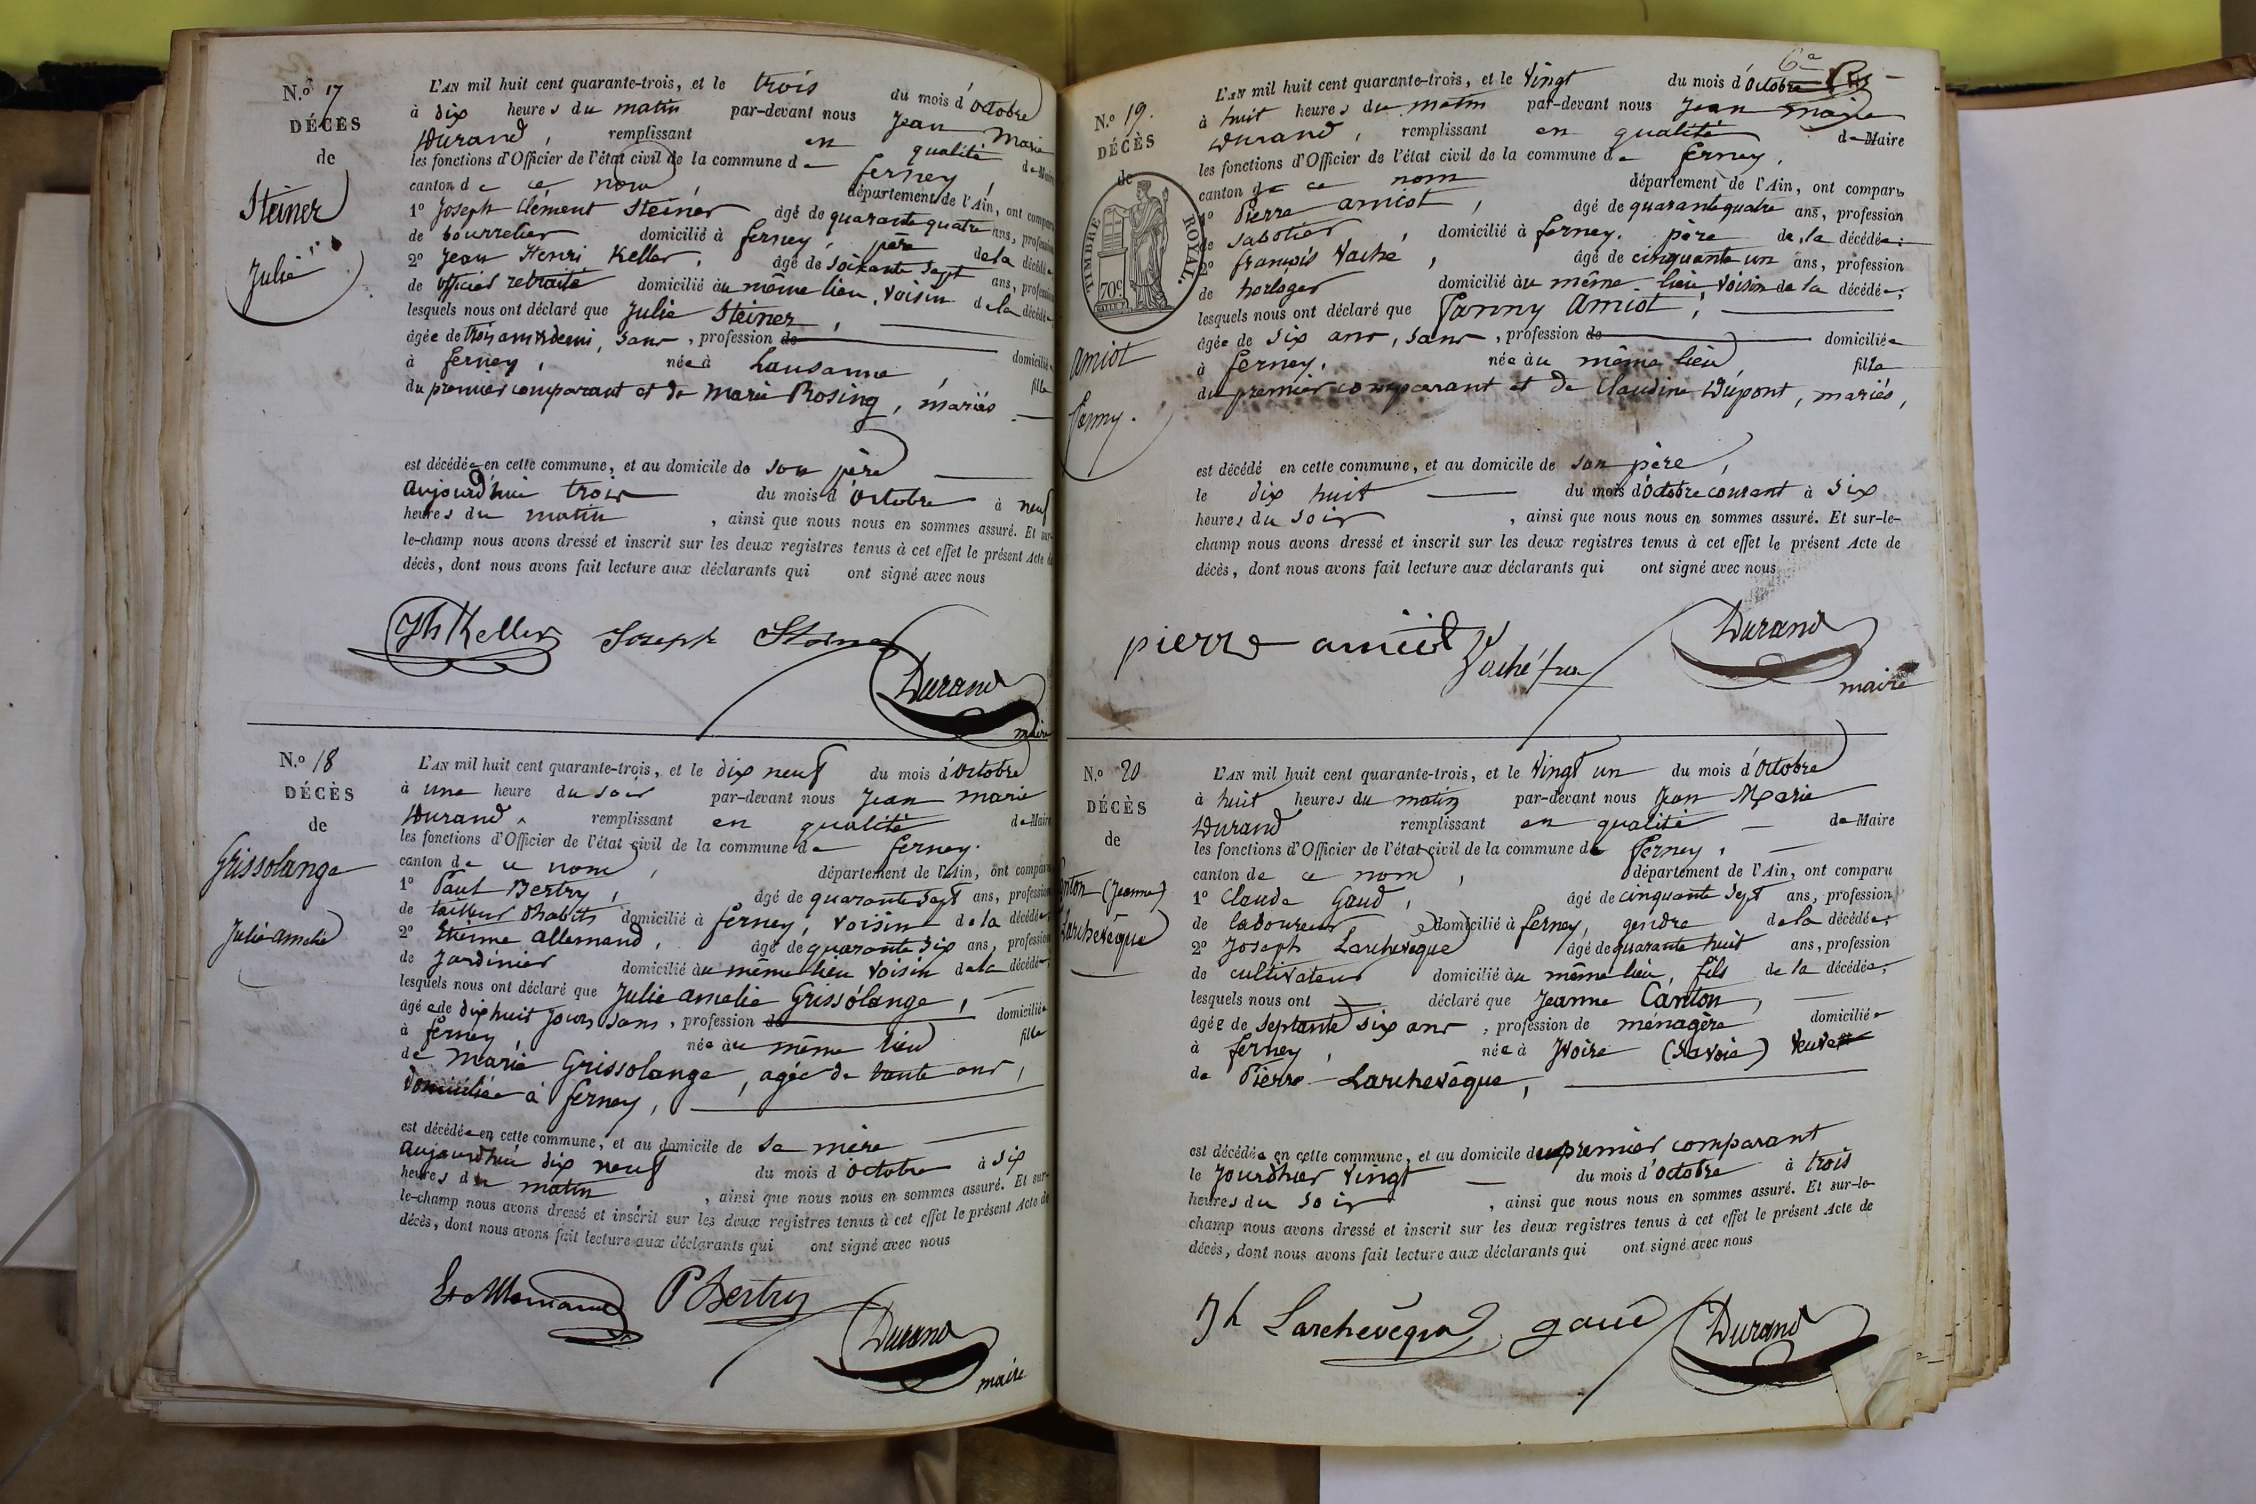 N.º 17
DÉCÈS
de
Steiner
Julie
L'AN mil huit cent quarante-trois, et le trois du mois d'Octobre
à dix heures du matin par-devant nous Jean Marie
Durand, remplissant en qualité de Maire
les fonctions d'Officier de l'état civil de la commune de ferney,
canton de ce nom, département de l'Ain, ont comparu
1º Joseph Clément Steiner âgé de quarante quatre ans, profession
de bourrelier domicilié à ferney, père de la décédée
2º Jean Henri Keller, âgé de soixante sept ans, profession
de officier retraité domicilié au même lieu, voisin de la décédée,
lesquels nous ont déclaré que Julie Steiner,
âgée de trois ans & demi, sans, profession de domiciliée
à ferney, née à Lausanne, fille
du premier comparant et de Marie Rosing, mariés
est décédée en cette commune, et au domicile de son père
aujourd'hui trois du mois d'Octobre à neuf
heures du matin, ainsi que nous nous en sommes assuré. Et sur-
le-champ nous avons dressé et inscrit sur les deux registres tenus à cet effet le présent Acte de
décès, dont nous avons fait lecture aux déclarants qui ont signé avec nous
Jh Keller Joseph Steiner
Durand
maire
N.º 18
DÉCÈS
de
Grissolange
Julie amelie
L'AN mil huit cent quarante-trois, et le dix neuf du mois d'Octobre
à une heure du soir par-devant nous Jean marie
Durand, remplissant en qualité de Maire
les fonctions d'Officier de l'état civil de la commune de ferney.
canton de ce nom, département de l'Ain, ont comparu
1º Paul Bertry, âgé de quarante sept ans, profession
de tailleur d'habits domicilié à ferney, voisin de la décédée;
2º Etienne allemand, âgé de quarante six ans, profession
de Jardinier domicilié au même lieu voisin de la décédée;
lesquels nous ont déclaré que Julie amelie Grissolange,
âgée de dix huit jours sans, profession de domiciliée
à ferney, née au même lieu fille
de Marie Grissolange, agée de trente ans,
domiciliée à ferney,
est décédée en cette commune, et au domicile de sa mère
aujourd'hui dix neuf du mois d'Octobre à six
heures du matin, ainsi que nous nous en sommes assuré. Et sur-
le-champ nous avons dressé et inscrit sur les deux registres tenus à cet effet le présent Acte de
décès, dont nous avons fait lecture aux déclarants qui ont signé avec nous
Et Allemand P Bertry
Durand
maire
6e
N.º 19.
DÉCÈS
de
TIMBRE ROYAL.
70c
amiot
fanny.
L'AN mil huit cent quarante-trois, et le Vingt du mois d'Octobre
à huit heures du matin par-devant nous Jean marie
Durand, remplissant en qualité de Maire
les fonctions d'Officier de l'état civil de la commune de ferney,
canton de ce nom département de l'Ain, ont comparu
1º Pierre amiot, âgé de quarante quatre ans, profession
de Sabotier, domicilié à ferney. père de la décédée;
2º françois Vaché, âgé de cinquante un ans, profession
de horloger domicilié au même lieu voisin de la décédée;
lesquels nous ont déclaré que Fanny Amiot,
âgée de six ans, sans, profession de domiciliée
à ferney, née au même lieu fille
du premier comparant et de Claudine Dupont, mariés,
est décédé en cette commune, et au domicile de son père,
le dix huit du mois d'Octobre courant à Six
heures du soir, ainsi que nous nous en sommes assuré. Et sur-le-
champ nous avons dressé et inscrit sur les deux registres tenus à cet effet le présent Acte de
décès, dont nous avons fait lecture aux déclarants qui ont signé avec nous
pierre amiot
Vaché
Durand
maire
N.º 20
DÉCÈS
de
Canton (Jeanne)
Larchevêque
L'AN mil huit cent quarante-trois, et le Vingt un du mois d'Octobre
à huit heures du matin par-devant nous Jean Marie
Durand remplissant en qualité de Maire
les fonctions d'Officier de l'état civil de la commune de Ferney,
canton de ce nom, département de l'Ain, ont comparu
1º Claude Gaud, âgé de cinquante sept ans, profession
de laboureur domicilié à ferney, gendre de la décédée;
2º Joseph Larchevêque âgé de quarante huit ans, profession
de cultivateur domicilié au même lieu, fils de la décédée;
lesquels nous ont déclaré que Jeanne Canton,
âgée de septante six ans, profession de ménagère domiciliée
à ferney, née à Yvoire (Savoie) veuve
de Pierre Larchevêque,
est décédée en cette commune, et au domicile du premier comparant
le Jourd'hier vingt du mois d'octobre à trois
heures du soir, ainsi que nous nous en sommes assuré. Et sur-le-
champ nous avons dressé et inscrit sur les deux registres tenus à cet effet le présent Acte de
décès, dont nous avons fait lecture aux déclarants qui ont signé avec nous
Jh Larchevêque gaud
Durand